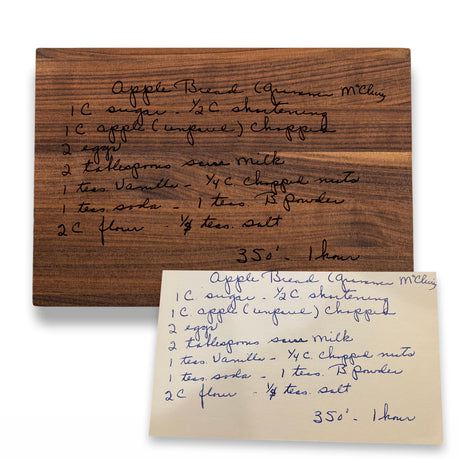 Apple Bread (
1 C sugar - ½ C shortening
1 C apple (unpared) chopped
2 eggs
2 tablespoons sour milk
1 teas. Vanilla - ¼ C. chopped nuts
1 teas. soda - 1 teas. B powder
2 C flour - teas. salt
350° - 1 hour
Apple Bread (
1 C sugar - ½ C shortening
1 C apple (unpared) chopped
2 eggs
2 tablespoons sour milk
1 teas. Vanilla - ¼ C. chopped nuts
1 teas. soda - 1 teas. B powder
2 C flour - teas. salt
350° - 1 hour